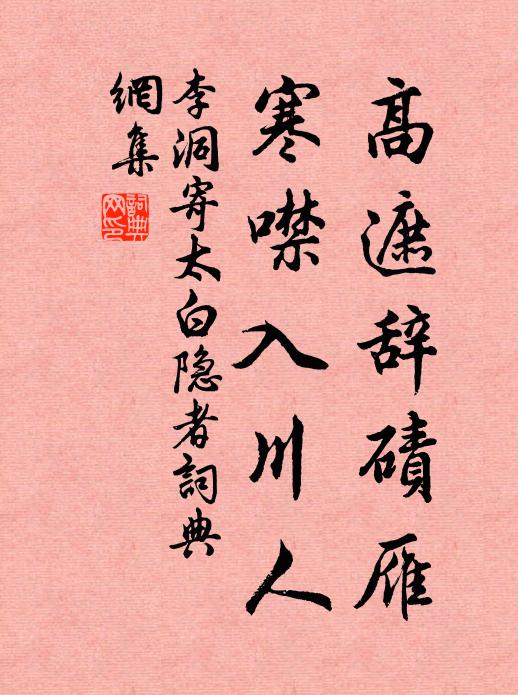 高遮辞碛雁
寒噤入川人
李洞寄太白隐者詞典
網集
詞典
网印